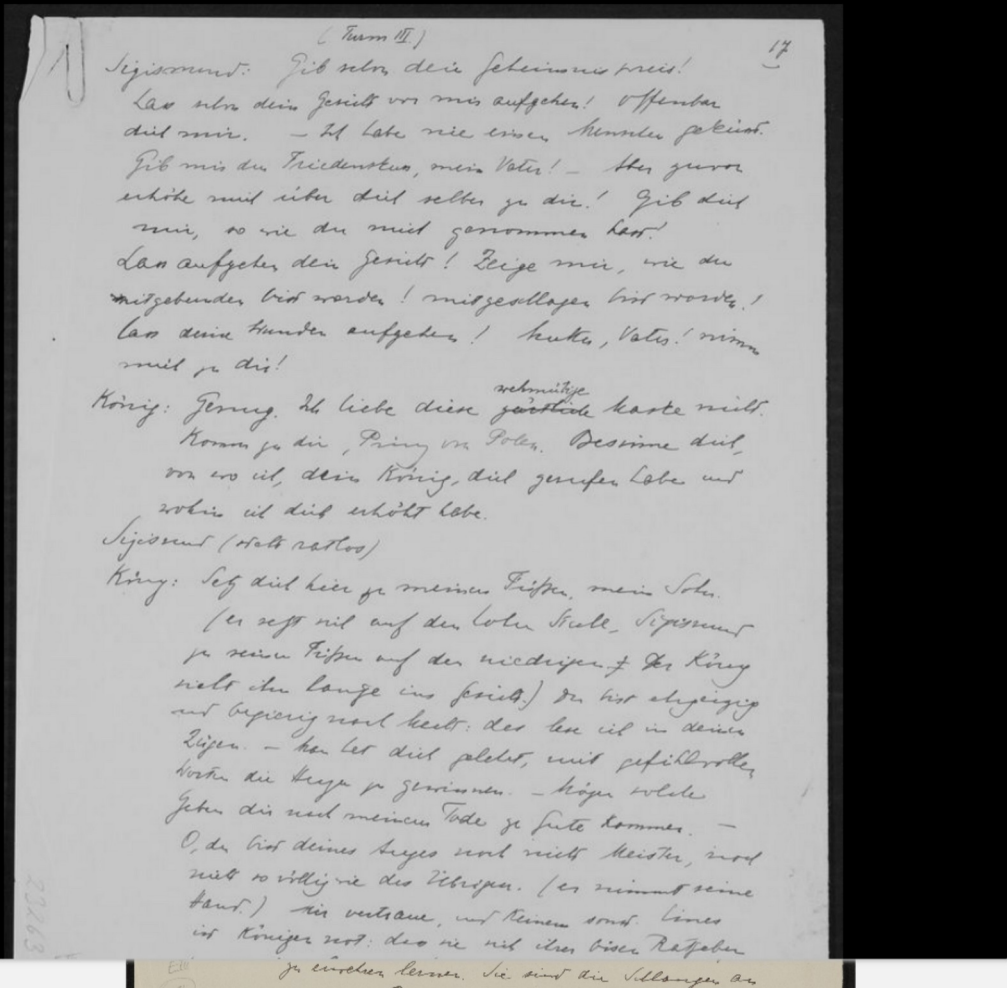 (Turm III.)
17
Sigismund: Gib schon dein Geheimnis preis!
Lass schon dein Gesicht vor mir aufgehen! Offenbar
dich mir. – Ich habe nie einen Menschen geküsst.
Gib mir den Friedenskuss, mein Vater! – Aber zuvor
erhöhe mich über dich selber zu dir! Gib dich
mir, so wie du mich genommen hast!
Lass aufgehen dein Gesicht! Zeige mir, wie du
bist worden! mitgeschlagen bist worden!
lass deine Wunden aufgehen! Mutter, Vater! nimm
mich zu dir!
König: Genug. Ich liebe diese wehmütige Maske nicht.
Komm zu dir, Prinz von Polen. Besinne dich,
von wo ich, dein König, dich gerufen habe und
wohin ich dich erhöht habe.
Sigismund (steht ratlos)
König: Setz dich hier zu meinen Füßen, mein Sohn.
(er setzt sich auf den hohen Stuhl, Sigismund
zu seinen Füßen auf den niedrigen. Der König
sieht ihm lange ins Gesicht.) Du bist ehrgeizig
und begierig nach Macht: das lese ich in deinen
Zügen. – Man hat dich gelehrt, mit gefühlvollen
Worten die Herzen zu gewinnen. – Mögen solche
Gaben dir nach meinem Tode zu Gute kommen. –
O, du bist deines Auges noch nicht Meister, noch
nicht so völlig wie des Übrigen. (er nimmt seine
Hand.) Mir vertraue, und keinem sonst. Eines
ist Königen not: dass sie sich ihrer bösen Ratgeber
zu erwehren lernen. Sie sind die Schlangen an
23263